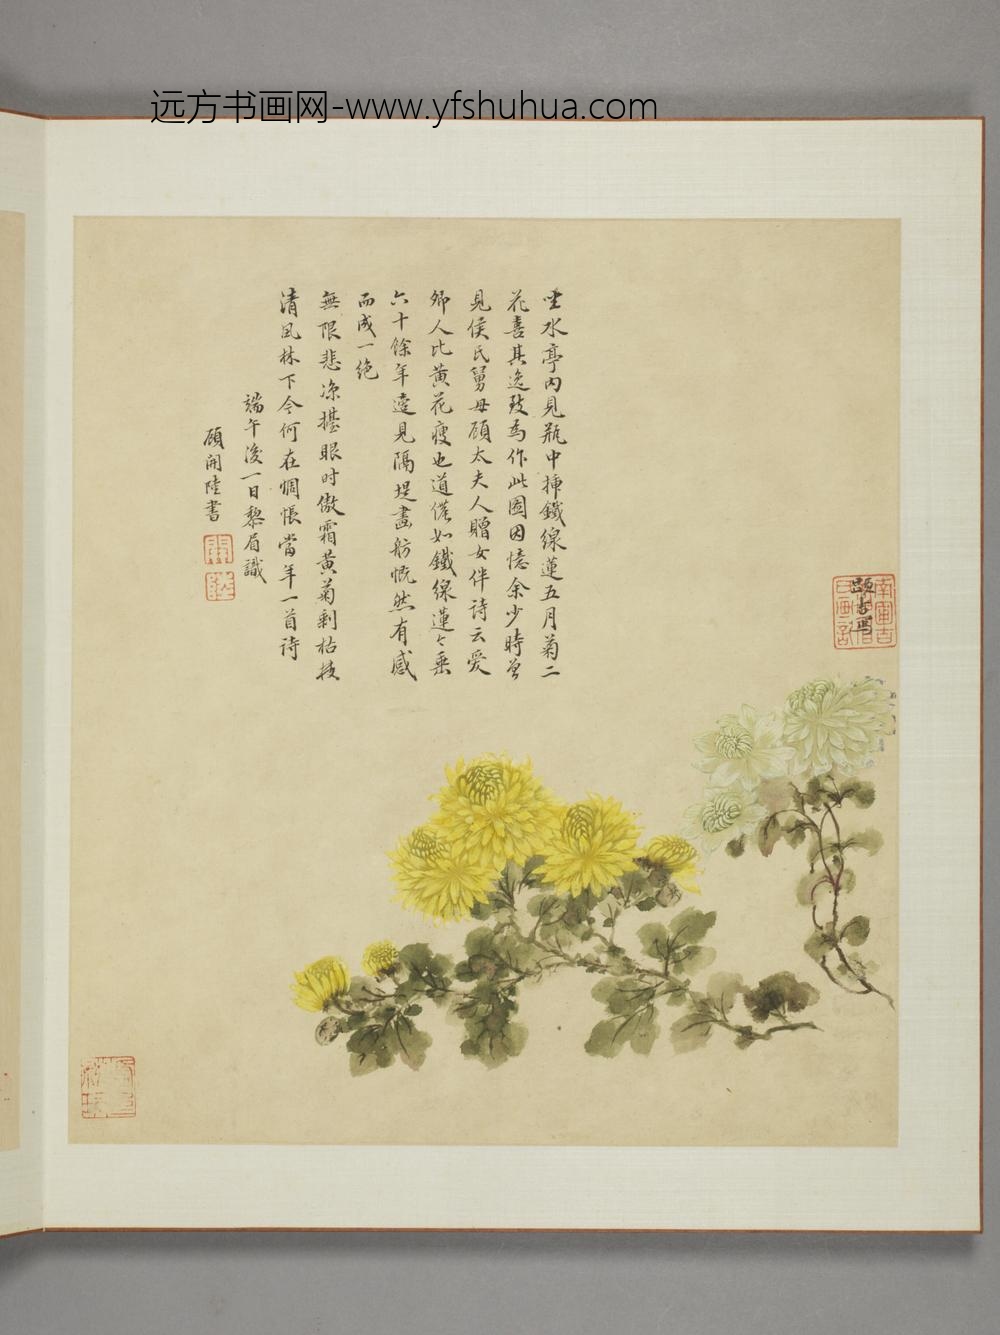 远方书画网-www.yfshuhua.com
坐水亭內見瓶中挿鐵線蓮五月菊二
花喜其逸致為作此圖因憶余少時曾
見侯氏舅母顧太夫人贈女伴詩云愛
卿人比黃花瘦也道僊如鐵線蓮々垂
六十餘年遠見隔堤畫舫慨然有感
而成一絶
無限悲涼擡眼时傲霜黃菊剩枯枝
清風林下今何在惆悵當年一首诗
端午後一日黎眉識
顧開陸書
開
陸
寫